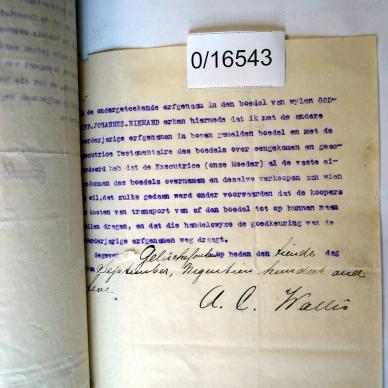 0/16543
k de ondergeteekende erfgenaam in den boedel van wylen GOD-
JOHANNES.NIEMAND erken hiermede dat ik met de andere
erderjarige erfgenamen in boven gemelden boedel en met de
xecutrice Testamentaire des boedels over eengekomen en geac-
ordeerd heb dat de Executrice (onze Moeder) al de vaste ei-
endommen des boedels overnemen en dezelve verkoopen aan wien
e wil, dat zulke gedaan werd onder voorwaarden dat de koopers
e kosten van transport van af den boedel tot op hunnen naam
ullen dragen, en dat die handelswyze de goedkeuring van de
eerderjarige erfgenamen weg draagt.
Gegeven op heden den tiende dag
van September, Negentien hundert and
five
A. C. Wallis